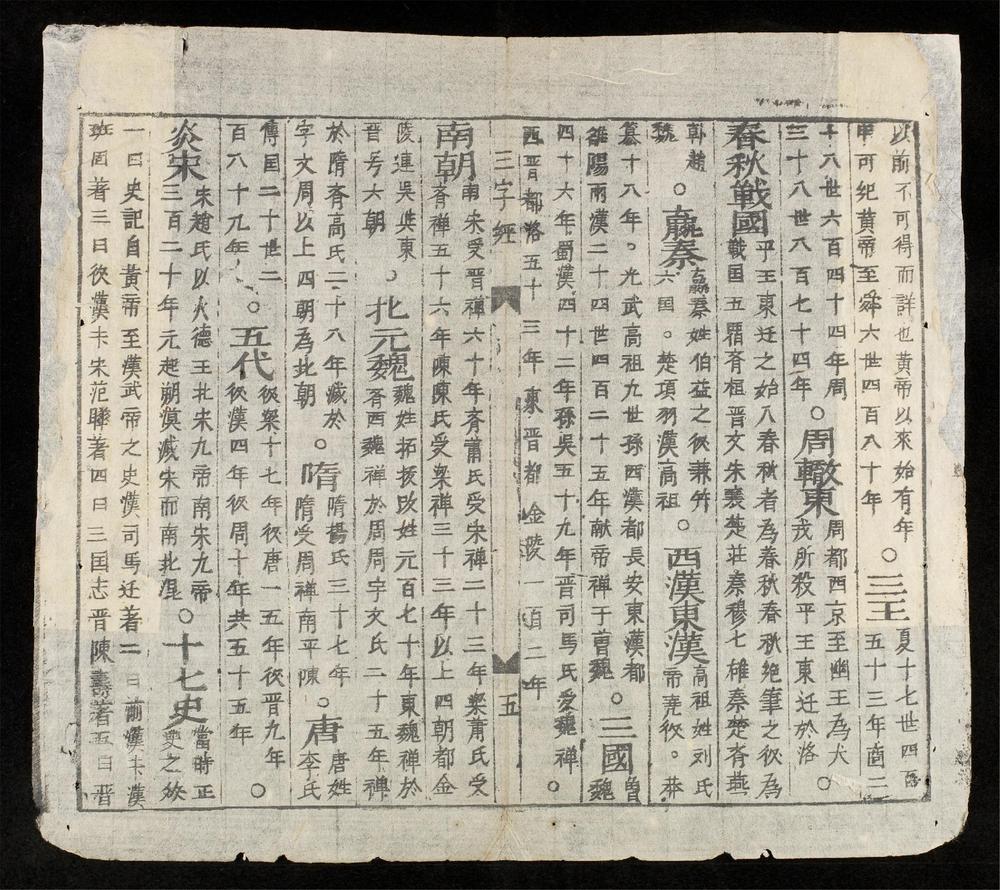 以前不可得而詳也黃帝以來始有年
甲可紀黃帝至舜六世四百八十年
○三王
夏十七世四百
五十三年商二
十八世六百四十四年周
三十八世八百七十四年
○周轍東
周都西京至幽王為犬
戎所殺平王東迁於洛○
春秋戰國
乎王東迁之始八春秋者為春秋春秋絶筆之後為
戰国五覇斉桓晋文宋襄楚莊秦穆七雄秦楚斉燕
韓趙
魏
○嬴秦
嬴秦姓伯益之後兼并
六国。楚項羽漢高祖
○西漢東漢
高祖姓刘氏
帝尭後。莽
簒十八年。光武高祖九世孫西漢都長安東漢都
雒陽兩漢二十四世四百二十五年献帝禅于曹魏
○三國
曹
魏
四十六年蜀漢四十二年孫吳五十九年晋司馬氏受魏禅○
西晋都洛五十三年東晋都金陵一百二年
三字經
五
南朝
南宋受晋禅六十年斉蕭氏受宋禅二十三年梁蕭氏受
斉禅五十六年陳陳氏受梁禅三十三年以上四朝都金
陵連吳東
晋号六朝
○北元魏
魏姓拓拔改姓元百七十年東魏禅於
斉西魏禅於周周宇文氏二十五年禅
於隋斉高氏二十八年滅於
宇文周以上四朝為北朝
○隋
隋楊氏三十七年
隋受周禅南平陳
○唐
唐姓
李氏
傳国二十世二
百八十九年
○五代
後梁十七年後唐一五年後晋九年
後漢四年後周十年共五十五年○
炎宋
宋趙氏以火德王北宋九帝南宋九帝
三百二十年元起朔漠滅宋而南北混
○十七史
當時正
史之
一曰史記自黃帝至漢武帝之史漢司馬迁著二曰前漢漢
班固著三曰後漢宋范曄著四曰三国志晋陳壽著五曰晋